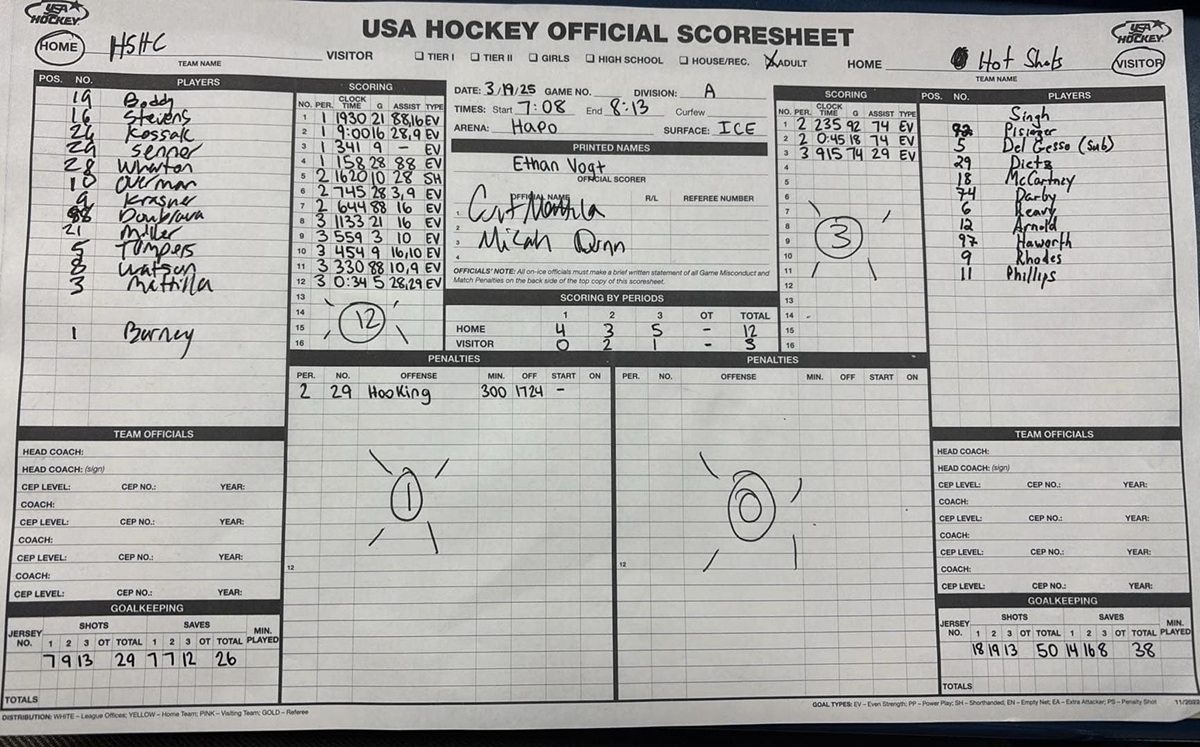 USA HOCKEY
USA HOCKEY OFFICIAL SCORESHEET
USA HOCKEY
HOME HSHC VISITOR □ TIER I □ TIER II □ GIRLS □ HIGH SCHOOL □ HOUSE/REC. ☒ ADULT HOME Hot Shots VISITOR
TEAM NAME
TEAM NAME
POS. NO. PLAYERS
19 Boddy
16 Stevens
26 Kossak
29 Senner
28 Wharton
10 Overman
9 Krasner
88 Doubrava
21 Miller
5 Tompers
8 Watson
3 Mattila
1 Burney
SCORING
NO. PER. CLOCK TIME G ASSIST TYPE
1 1 1930 21 88,16 EV
2 1 9:00 16 28,9 EV
3 1 341 9 - EV
4 1 158 28 88 EV
5 2 1620 10 28 SH
6 2 745 28 3,9 EV
7 2 644 88 16 EV
8 3 1133 21 16 EV
9 3 559 3 10 EV
10 3 454 9 16,10 EV
11 3 330 88 10,9 EV
12 3 0:34 5 28,29 EV
13
14
15
16
12
DATE: 3/19/25 GAME NO. DIVISION: A
TIMES: Start 7:08 End 8:13 Curfew
ARENA: Hapo SURFACE: ICE
PRINTED NAMES
Ethan Vogt
OFFICIAL SCORER
OFFICIAL NAME R/L REFEREE NUMBER
1 Curt Mattila
2
3 Micah Dunn
4
OFFICIALS' NOTE: All on-ice officials must make a brief written statement of all Game Misconduct and
Match Penalties on the back side of the top copy of this scoresheet.
SCORING BY PERIODS
1 2 3 OT TOTAL
HOME 4 3 5 - 12
VISITOR 0 2 1 - 3
SCORING
NO. PER. CLOCK TIME G ASSIST TYPE
1 2 235 92 74 EV
2 2 0:45 18 74 EV
3 3 915 74 29 EV
4
5
6
7
8
9
10
11
12
13
14
15
16
3
POS. NO. PLAYERS
Singh
92 Pisinger
5 Del Gesso (sub)
29 Dietz
18 McCartney
74 Darby
6 Reavy
12 Arnold
97 Haworth
9 Rhodes
11 Phillips
PENALTIES
PER. NO. OFFENSE MIN. OFF START ON
2 29 Hooking 300 1724 -
1
12
PENALTIES
PER. NO. OFFENSE MIN. OFF START ON
0
12
TEAM OFFICIALS
HEAD COACH:
HEAD COACH: (sign)
CEP LEVEL: CEP NO.: YEAR:
COACH:
CEP LEVEL: CEP NO.: YEAR:
COACH:
CEP LEVEL: CEP NO.: YEAR:
COACH:
CEP LEVEL: CEP NO.: YEAR:
GOALKEEPING
JERSEY NO. SHOTS SAVES MIN. PLAYED
1 2 3 OT TOTAL 1 2 3 OT TOTAL
7 9 13 29 7 7 12 26
TOTALS
TEAM OFFICIALS
HEAD COACH:
HEAD COACH: (sign)
CEP LEVEL: CEP NO.: YEAR:
COACH:
CEP LEVEL: CEP NO.: YEAR:
COACH:
CEP LEVEL: CEP NO.: YEAR:
COACH:
CEP LEVEL: CEP NO.: YEAR:
GOALKEEPING
JERSEY NO. SHOTS SAVES MIN. PLAYED
1 2 3 OT TOTAL 1 2 3 OT TOTAL
18 19 13 50 14 16 8 38
TOTALS
DISTRIBUTION: WHITE – League Offices; YELLOW – Home Team; PINK – Visiting Team; GOLD – Referee
GOAL TYPES: EV – Even Strength; PP – Power Play; SH – Shorthanded; EN – Empty Net; EA – Extra Attacker; PS – Penalty Shot 11/2023